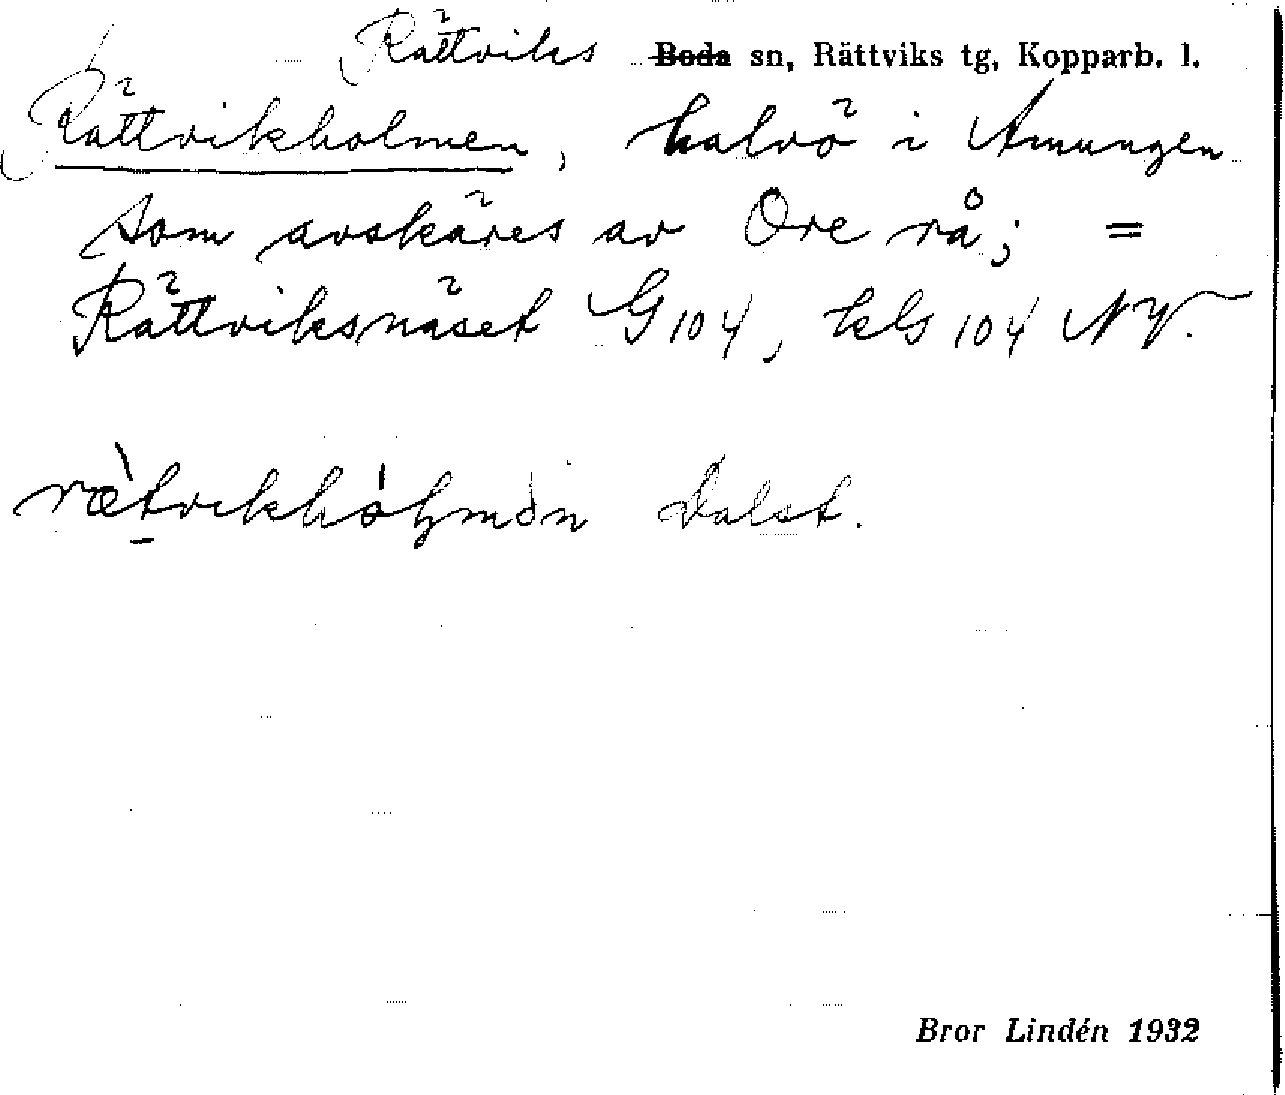 Rättviks Boda sn, Rättviks tg, Kopparb. l.
Rättvikholmen, halvö i Amungen
som avskäres av Ore rå; =
Rättviksnäset G 104, kls 104 NV.
Dalst.
Bror Lindén 1932